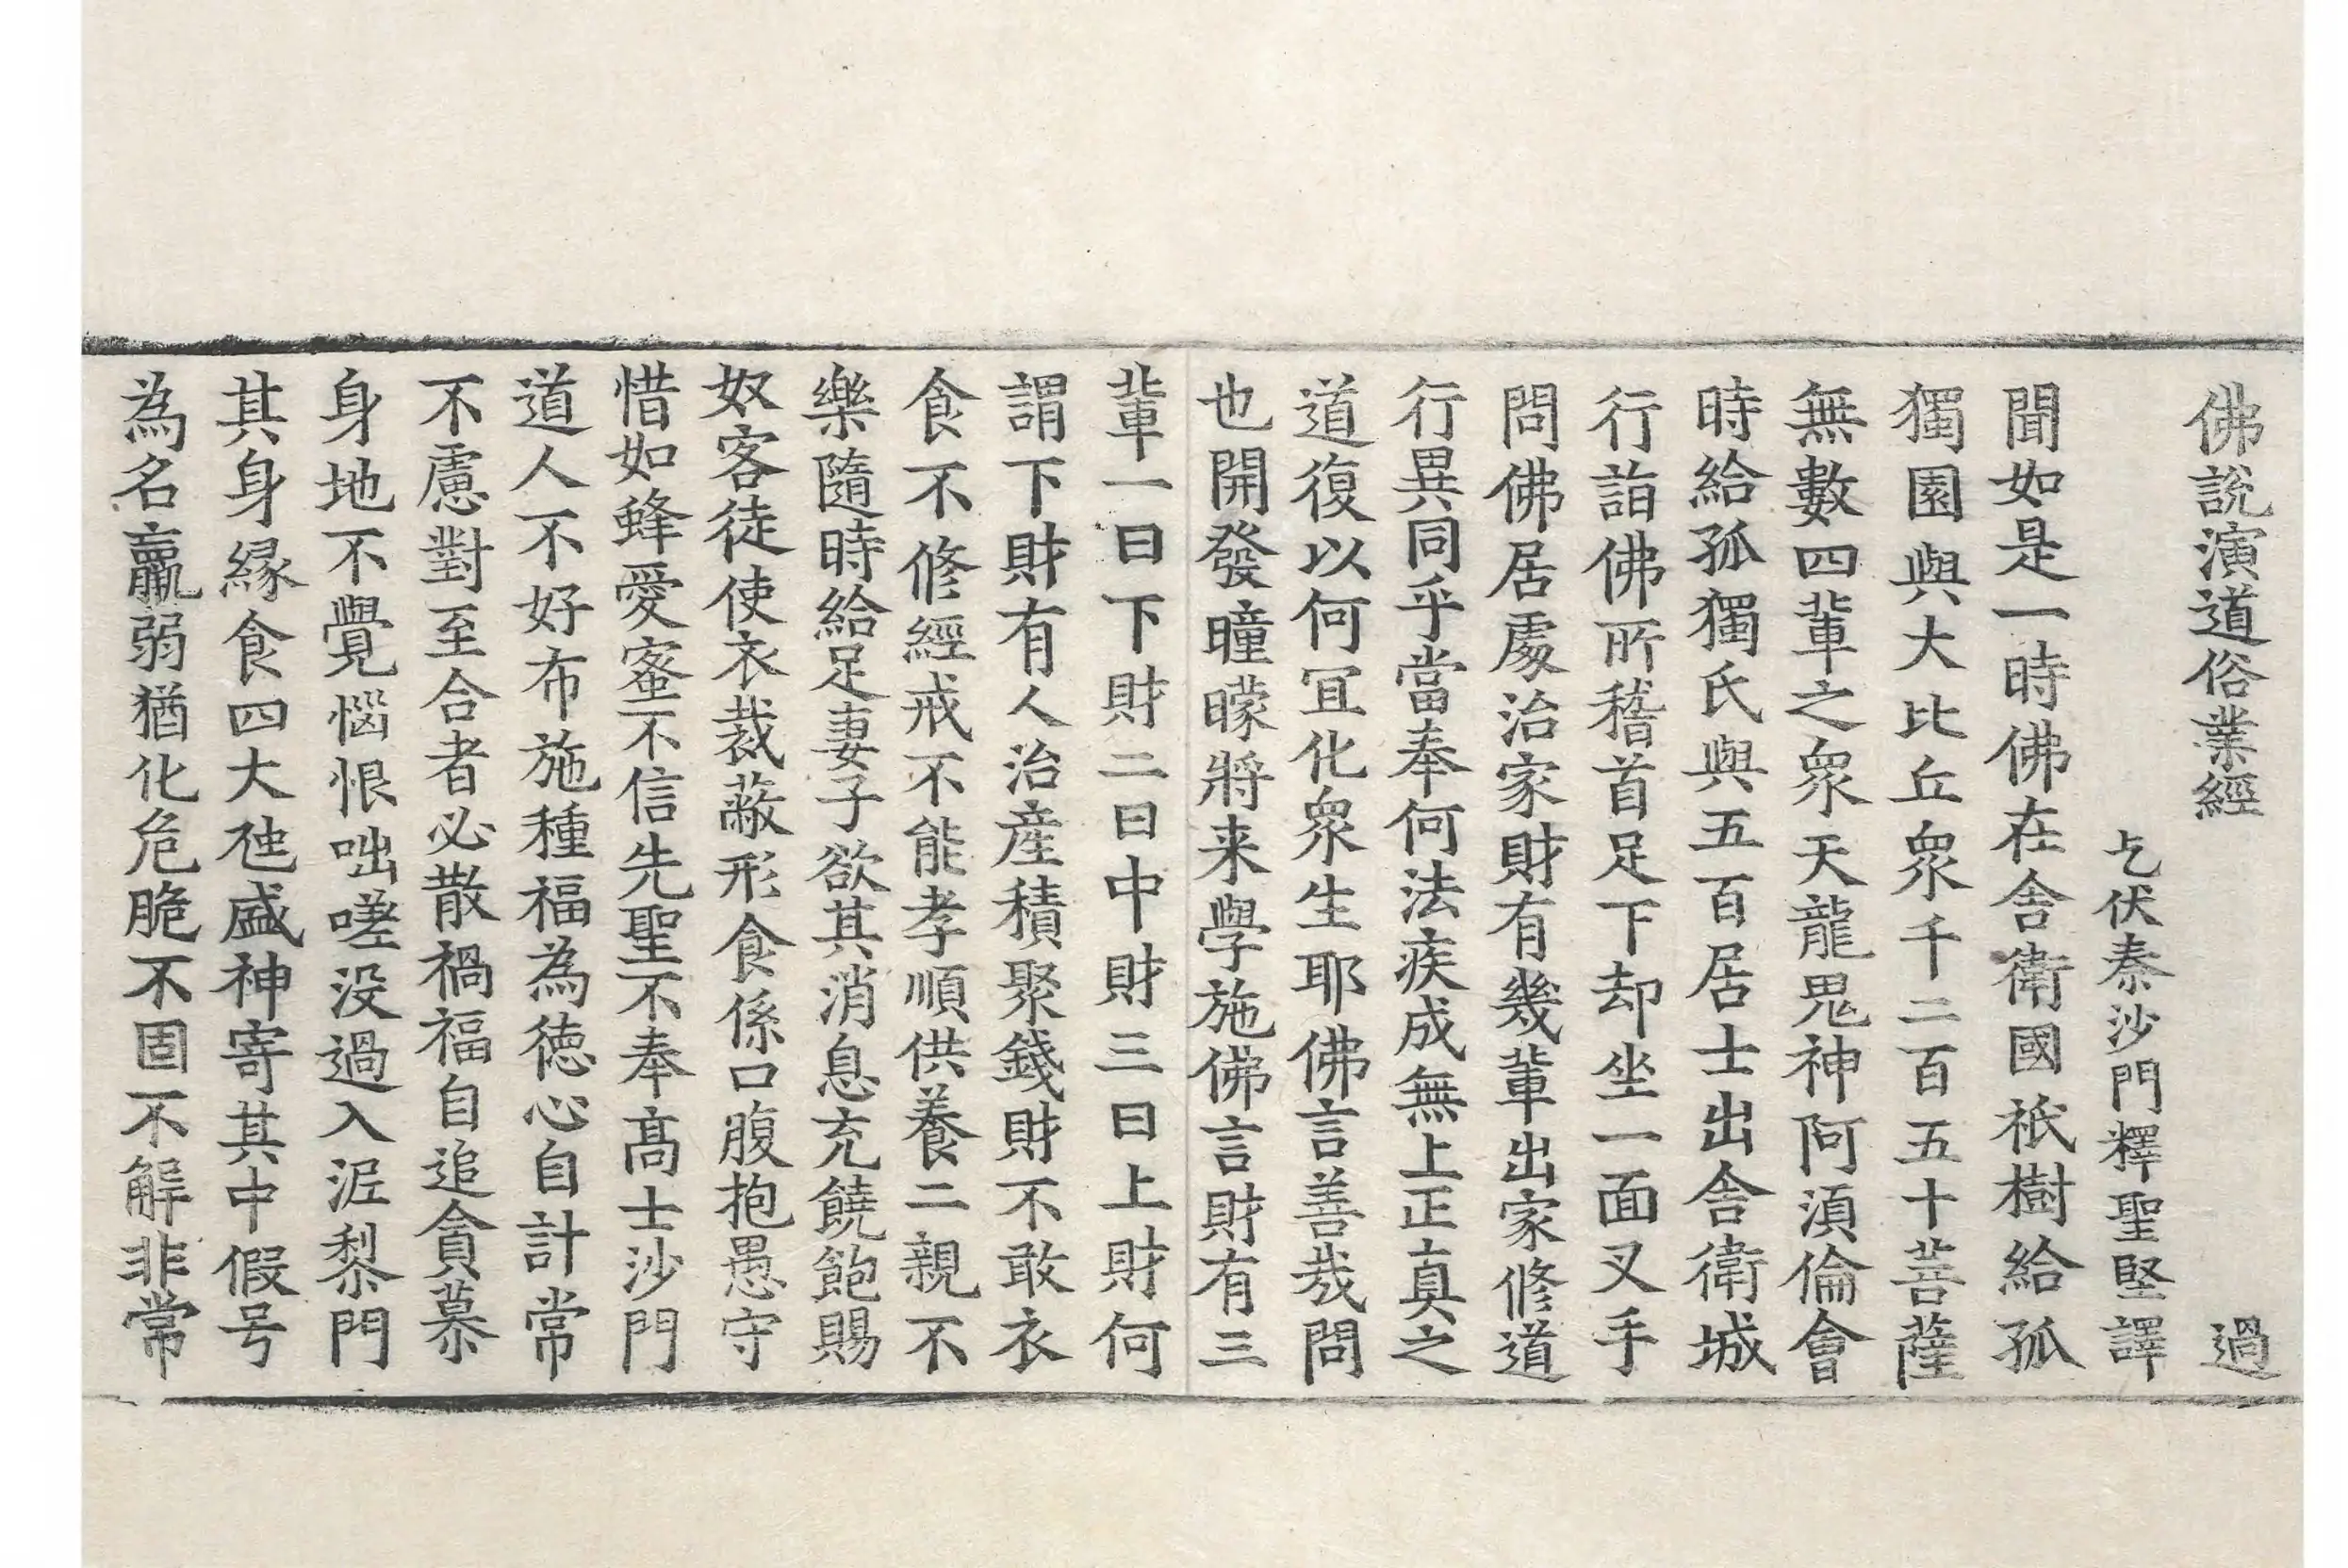 佛說演道俗業經 過
乞伏秦沙門釋聖堅譯
聞如是一時佛在舍衛國祇樹給孤
獨園與大比丘眾千二百五十菩薩
無數四輩之眾天龍鬼神阿湏倫會
時給孤獨氏與五百居士出舍衛城
行詣佛所稽首足下却坐一面叉手
問佛居處治家財有幾輩出家修道
行異同乎當奉何法疾成無上正真之
道復以何冝化眾生耶佛言善哉問
也開發瞳矇將来學施佛言財有三
輩一曰下財二曰中財三曰上財何
謂下財有人治產積聚錢財不敢衣
食不修經戒不能孝順供養二親不
樂隨時給足妻子欲其消息充饒飽賜
奴客徒使衣裁蔽形食係口腹抱愚守
惜如蜂愛蜜不信先聖不奉高士沙門
道人不好布施種福為徳心自計常
不慮對至合者必散禍福自追貪慕
身地不覺惱恨咄嗟没過入泥犁門
其身縁食四大虺盛神寄其中假号
為名羸弱猶化危脆不固不解非常